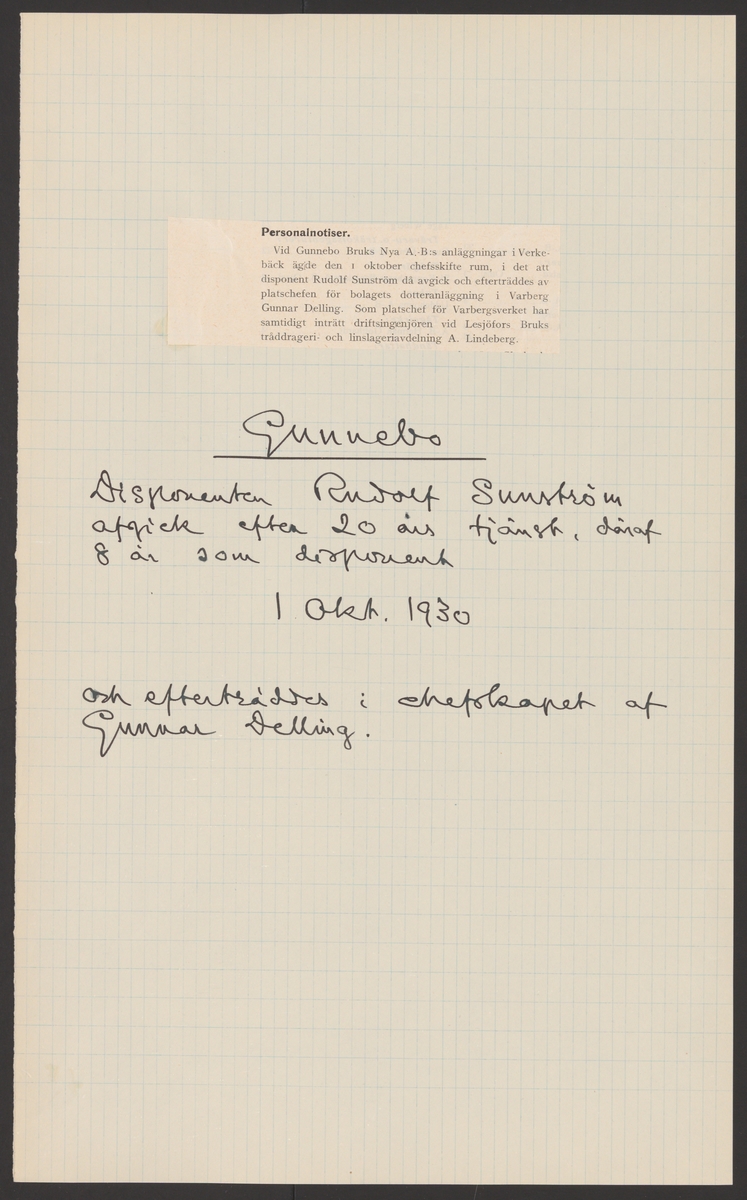 Personalnotiser.
Vid Gunnebo Bruks Nya A.-B:s anläggningar i Verke-
bäck ägde den 1 oktober chefsskifte rum, i det att
disponent Rudolf Sunström då avgick och efterträddes av
platschefen för bolagets dotteranläggning i Varberg
Gunnar Delling. Som platschef för Varbergsverket har
samtidigt inträtt driftsingenjören vid Lesjöfors Bruks
tråddrageri- och linslageriavdelning A. Lindeberg.
Gunnebo
Disponenten Rudolf Sunström
afgick efter 20 års tjänst, däraf
8 år som disponent
1 Okt. 1930
och efterträddes i chefskapet af
Gunnar Delling.